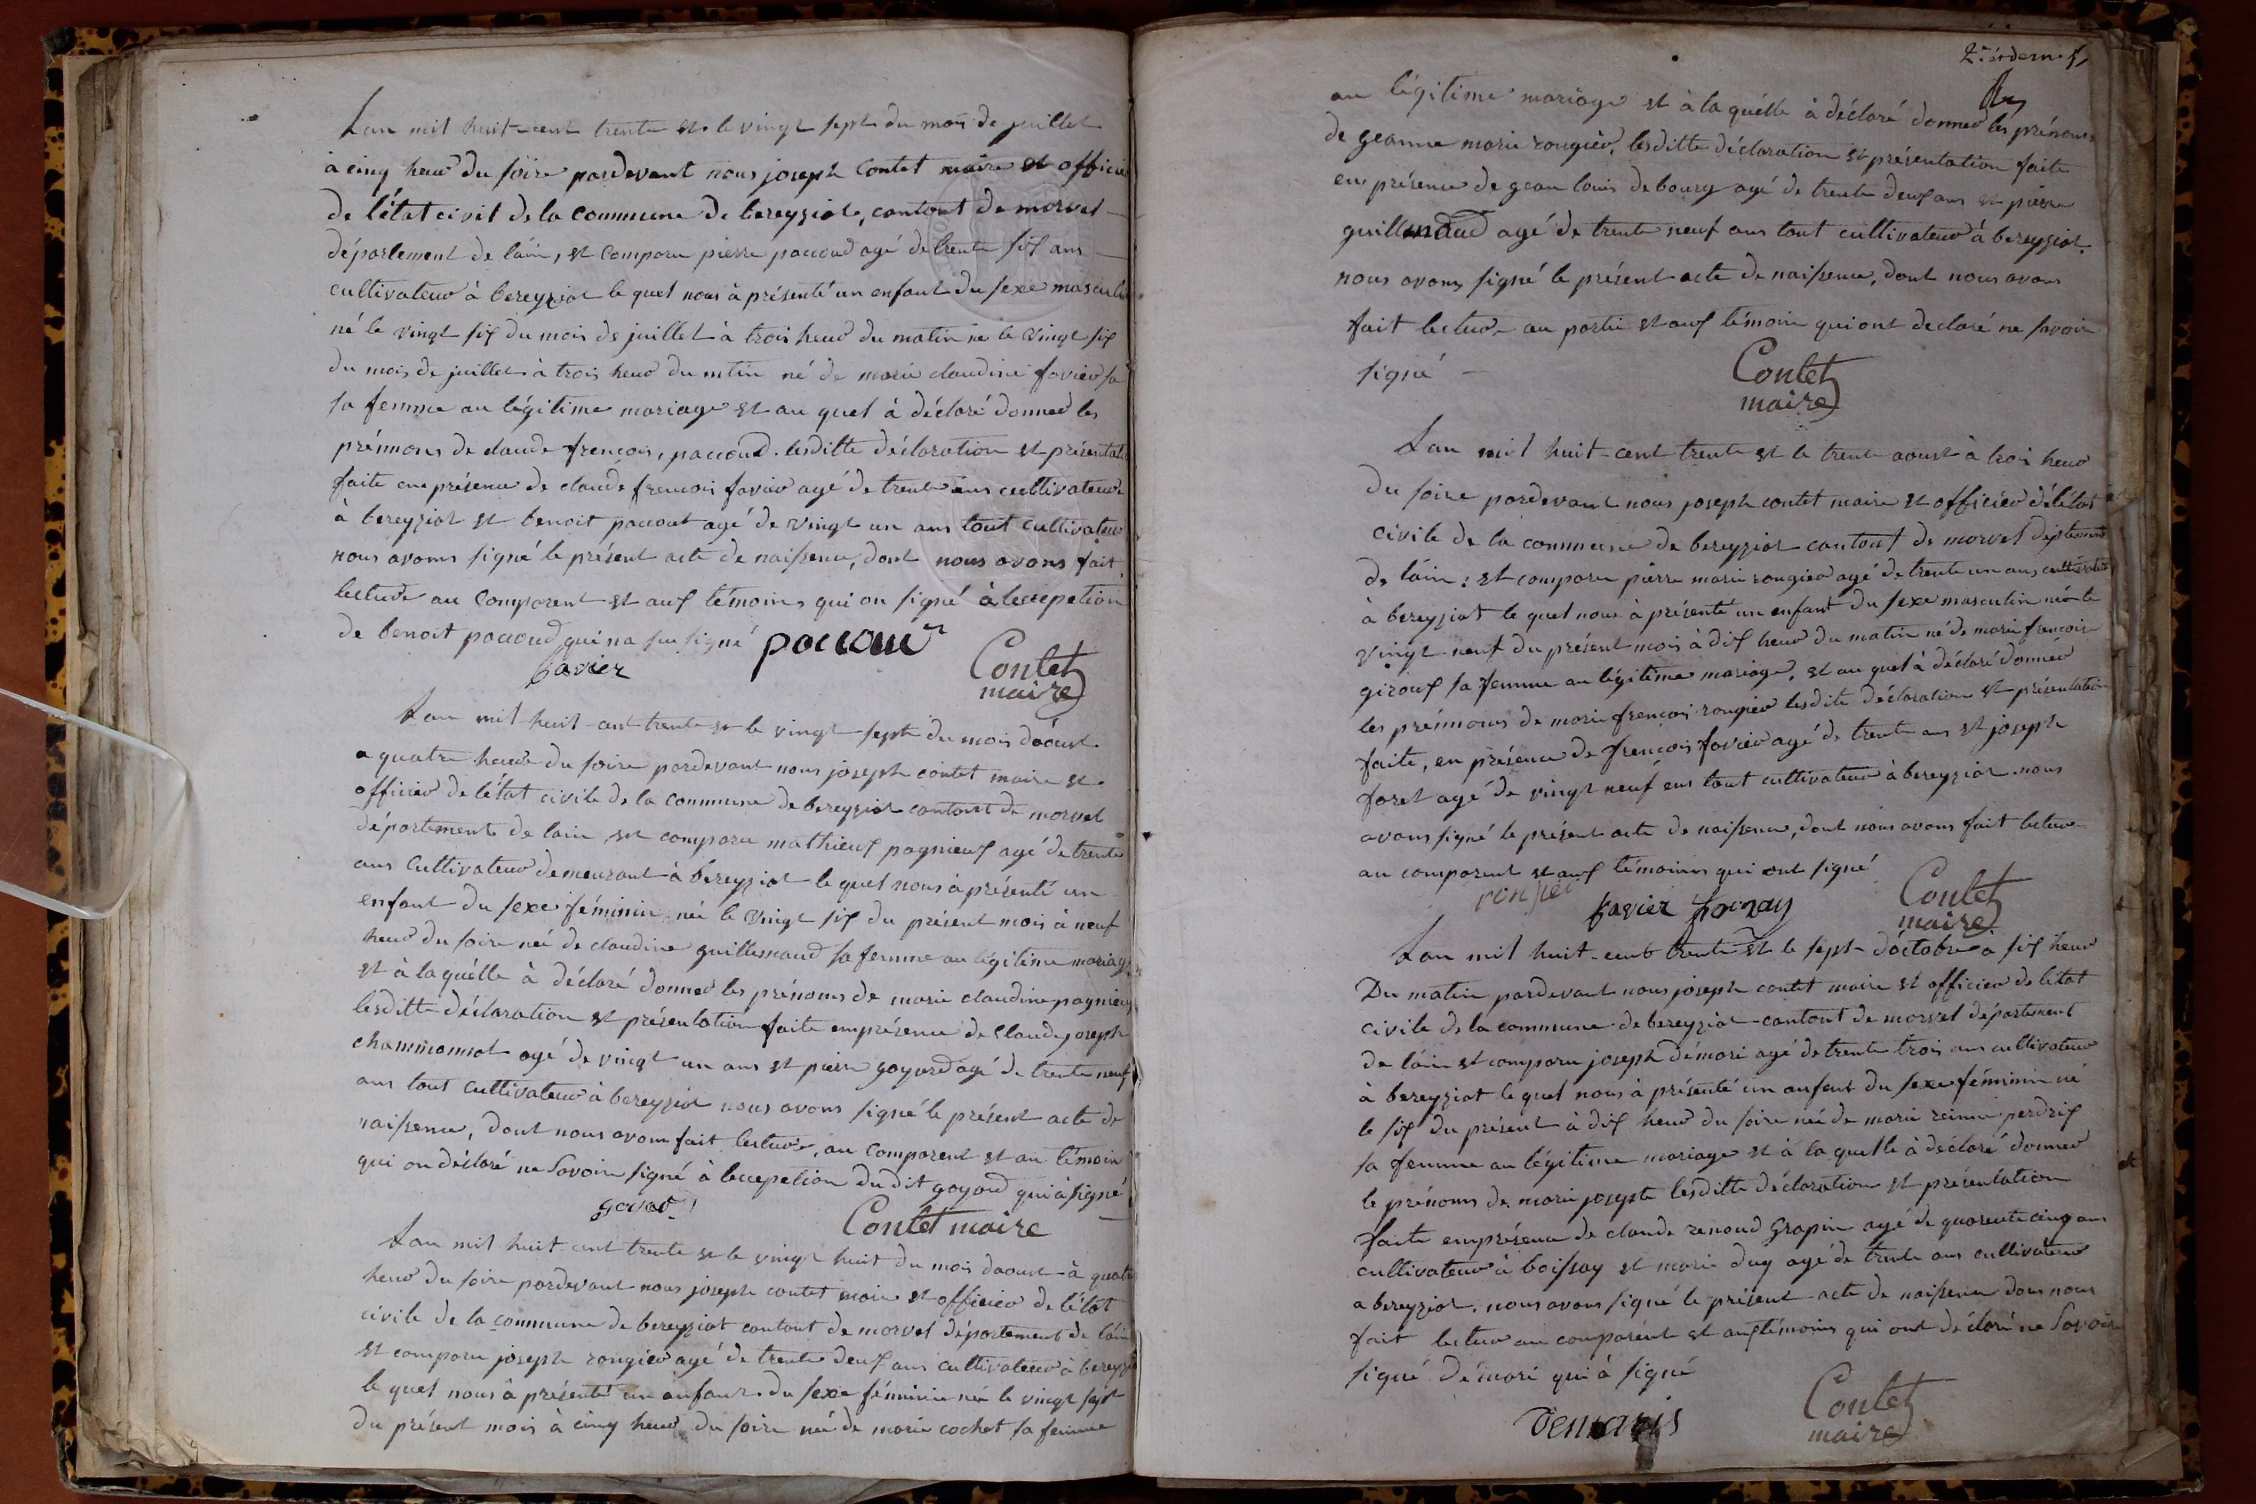 Lan mil huit-cent trente et le vingt sept du mois de juillet
à cinq heur du soire pardevant nous joseph Contet maire et officier
de l'état civil de la commune de bereyziat, contont de morvel
département de láin, et comparu pierre paccoud agé de trente six ans
cultivateur à bereyziat le quel nous à présenté un enfant du sexe masculin
né le vingt six du mois de juillet à trois heur du matin né le vingt six
du mois de juillet à trois heur du mtin né de marie claudine favier sa
sa femme au légitime mariage et au quel à déclaré donner les
prénmons de claude françois, paccoud. lesditte déclaration et présentation
faite en présence de claude francois favier agé de trente ans cultivateur
à bereyziat et benoit paccout agé de vingt un ans tout cultivateur
nous avons signé le présent acte de naissence, dont nous avons fait
lecture au comparent et aux témoins qui on signé à lecception
de benoit paccoud qui na su signé paccoud
favier
Contet
maire
Lan mil huit-cent trente et le vingt sept du mois dáoust
a quatre heur du soire pardevant nous joseph contet maire et
officier de l'état civile de la commune de bereyziat contont de morvel
département de lain, et comparu mathieux pagnieux agé de trente
ans cultivateur demeurant à bereyziat le quel nous à présenté un
enfant du sexe féminin née le vingt six du présent mois à neuf
heur du soire née de claudine guillemaud sa femme au légitime mariage
et à la quélle à déclaré donner les prénoms de marie claudine pagnieux
lesditte déclaration et présentation faite emprésence de Claude joseph
chammomot agé de vingt un ans et pierre goyard agé de trente neuf
ans tout cultivateur à bereyziat nous avons signé le présent acte de
naissence, dont nous avons fait lecture, au comparent et au témoin
qui on déclaré ne savoir signé à lecception du dit goyard qui à signé
goyard
Contet maire
Lan mil huit-cent trente et le vingt huit du mois daoust à quatre
heur du soire pardevant nous joseph contet maire et officier de l'état
civile de la commune de bereyziat contont de morvel département de láin
et comparu joseph rougier agé de trente deux ans cultivateur à bereyziat
le quel nous à présenté un anfant du sexe féminin née le vingt sept
du présent mois à cinq heur du soire née de marie cochet sa femme
au légitime mariage et à la quélle à déclaré donner les prénoms
de geanne marie rougier, lesditte déclaration et présentation faite
en présence de gean louis debourg agé de trente deux ans et pierre
guillemaud agé de trente neuf ans tout cultivateur à bereyziat.
nous avons signé le présent acte de naissence, dont nous avons
fait lecture au partie et aux témoin qui ont declaré ne savoir
signé
Contet
maire
Lan mil huit-cent trente et le trente aoust à trois heur
du soire pardevant nous joseph contet maire et officier délétat
civile de la commune de bereyziat contont de morvel déptement
de láin: et comparu pierre marie rougier agé de trente un ans, cultivateur
à bereyziat le quel nous à présenté un enfant du sexe masculin né le
vingt neuf du présent mois à dix heur du matin né de marie françoise
giroux sa femme au légitime mariage, et au quel à déclaré donner
les prénmons de marie françois rougier lesdite déclaration et présentation
faite, en présence de françois favier agé de trente ans et joseph
foret agé de vingt neuf ans tout cultivateur à bereyziat nous
avons signé le présent acte de naissence, dont nous avons fait lecture
au comparent et aux témoinns qui ont signé
favier
Contet
maire
Lan mil huit-cent trente et le sept d'octobre a six heur
Du matin pardevant nous joseph contet maire et officier de létat
civile de la commune de bereyziat contont de morvel département
de láin et comparu joseph démari agé de trente trois ans cultivateur
à bereyziat le quel nous à présenté un anfant du sexe féminin né
le six du présent à dix heur du soire née de marie reinne perdrix
sa femme au légitime mariage et à la quelle à déclaré donner
le prénoms de marie josepte lesditte déclaration et présentation
faite emprésence de claude renoud Grapin agé de quarente cinq ans
cultivateur à boissay et marie duy agé de trente ans cultivateur
a bereyziat. nous avons signé le présent acte de naissence dons nous
fait lectur au comparent et aux témoins qui ont déclaré ne Savoir
signé démari qui à signé
Demaris
Contet
maire